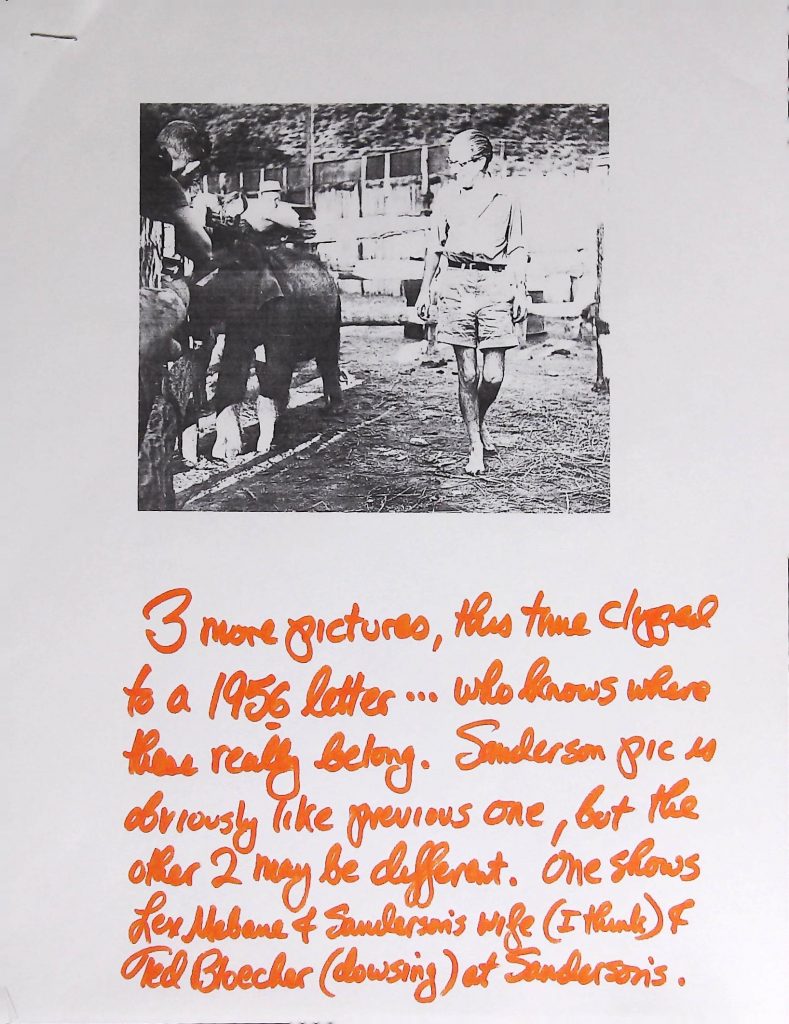 3 more pictures, this time clipped
to a 1956 letter... who knows where
these really belong. Sanderson pic is
obviously like previous one, but the
other 2 may be different. One shows
Lex Mebane & Sanderson's wife (I think) &
Ted Bloecher (dowsing) at Sanderson's.